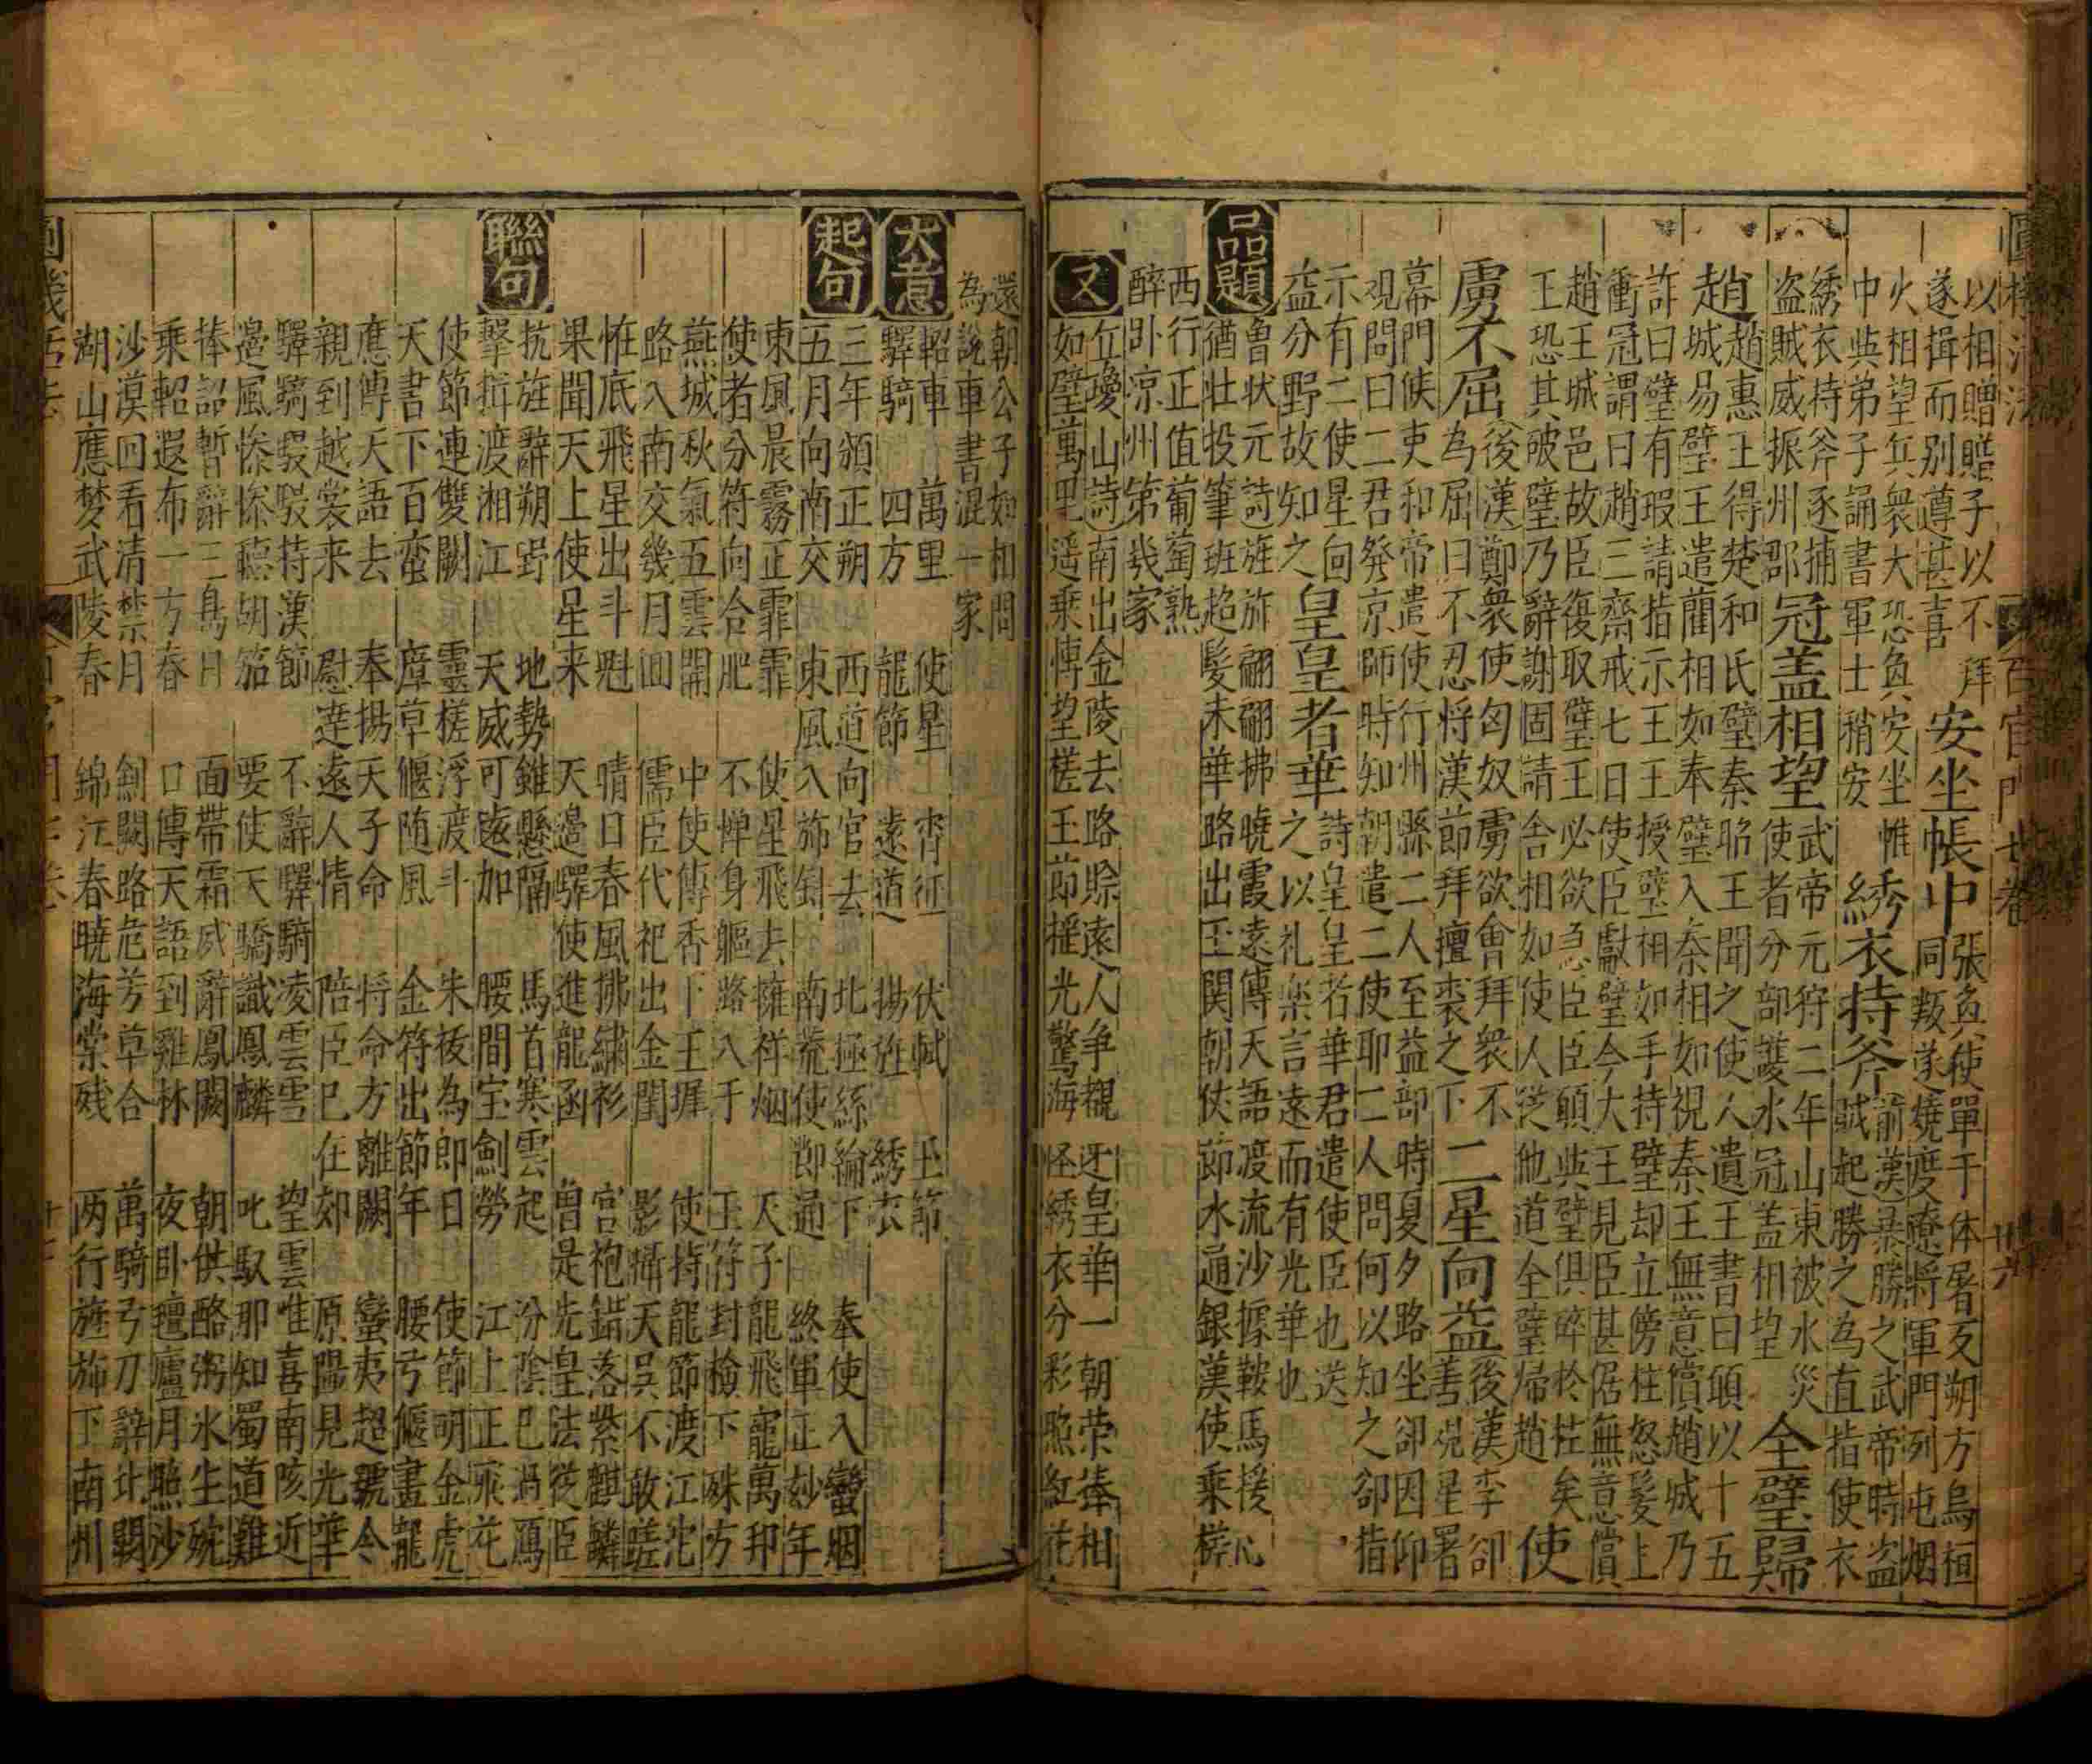 圓機活法 百官門七卷 卅六
以相贈贈子以不拜
遂揖而别遵甚喜
安坐帳中
張奐使單于体屠叐朔方烏桓
同叛遂燒度遼將軍門列屯烟
火相望兵衆大恐奐安坐帷
中與弟子誦書軍士稍安
綉衣持斧
前漢暴勝之武帝時盗
賊起勝之為直指使衣
綉衣持斧逐捕
盗賊威振州郡
冠盖相望
武帝元狩二年山東被水災
使者分部護水冠盖相望
全璧歸
趙
趙惠王得楚和氏璧秦昭王聞之使人遺王書曰頭以十五
城易璧王遣藺相如奉璧入秦相如視秦王無意償趙城乃
詐曰璧有瑕請指示王王授璧相如手持璧却立傍柱怒髮上
衝冠謂曰趙三齋戒七日使臣獻璧今大王見臣甚倨無意償
趙王城邑故臣復取璧王必欲急臣臣頭與璧俱碎於柱矣
王恐其破璧乃辭謝固請舍相如使人従他道全璧帰趙
使
虜不屈
後漢鄭衆使匈奴虜欲會拜衆不
為屈曰不忍将漢節拜氊裘之下
二星向益
後漢李卻
善覘星署
幕門候吏和帝遣使行州縣二人至益部時夏夕路坐卻因仰
覘問曰二君發京師時知朝遣二使耶二人問何以知之卻指
示有二使星向
益分野故知之
皇皇者華
詩皇皇者華君遣使臣也送
之以礼楽言遠而有光華也
品題
魯状元詩旌旂翩翩拂曉霞遠傳天語渡流沙據鞍馬援心
猶壮投筆班超髮未華路出玉関朝伏節水通銀漢使乗槎
西行正值葡萄熟
醉卧凉州第幾家
又
丘瓊山詩南出金陵去路賒遠人争覩迓皇華一朝荣捧相
如璧萬里遥乗博望槎王莭摇光驚海怪綉衣分彩照紅花
還朝公子如相問
為説車書混一家
大意
軺車 萬里 使星 宵征 伏軾 玉節
驛騎 四方 龍節 遠道 揚旌 綉衣
起句
三年頒正朔 西道向官去 北極絲綸下 奉使入蠻烟
五月向南交 東風入斾 南荒使節通 終軍正妙年
東風晨霧正霏霏 使星飛去擁祥烟 天子龍飛寵萬邦
使者分符向合肥 不憚身軀路入于 玉符封檢下殊方
燕城秋氣五雲開 中使傳香下玉墀 使持龍節渡江沱
路入南交幾月囬 儒臣代祀出金閨 影囁天吴不敢嗟
恠底飛星出斗魁 晴日春風拂繍衫 宫袍錯落紫麒麟
果聞天上使星来 天邉驛使進龍函 曽是先皇法従臣
聯句
抗旌辭朔野 地勢雖懸隔 馬首寒雲起 汾隂巳過鴈
擊揖渡湘江 天威可遠加 腰間宝劍勞 江上正飛花
使節連雙闕 靈槎浮渡斗 朱祓為郎日 使節明金虎
天書下百蛮 麾草偃随風 金符出節年 腰弓偃畫龍
應傳天語去 奉揚天子命 将命方離闕 蠻夷超號令
親到越裳来 慰逹遠人情 陪臣巳在郊 原隰見光華
驛騎駸駸持漢節 不辭驛騎凌雲雪 望雲惟喜南陔近
邉風惨惨聴胡笳 要使天驕識鳳麟 叱馭那知蜀道難
捧詔暫辭三島日 面帶霜威辭鳳闕 朝供酪粥氷生碗
乗軺遐布一方春 口傳天語到雞林 夜卧氊廬月照沙
沙漠回看清禁月 劍閣路危芳草合 萬騎弓刀辭北闕
湖山應梦武陵春 錦江春曉海棠残 两行旌斾下南州